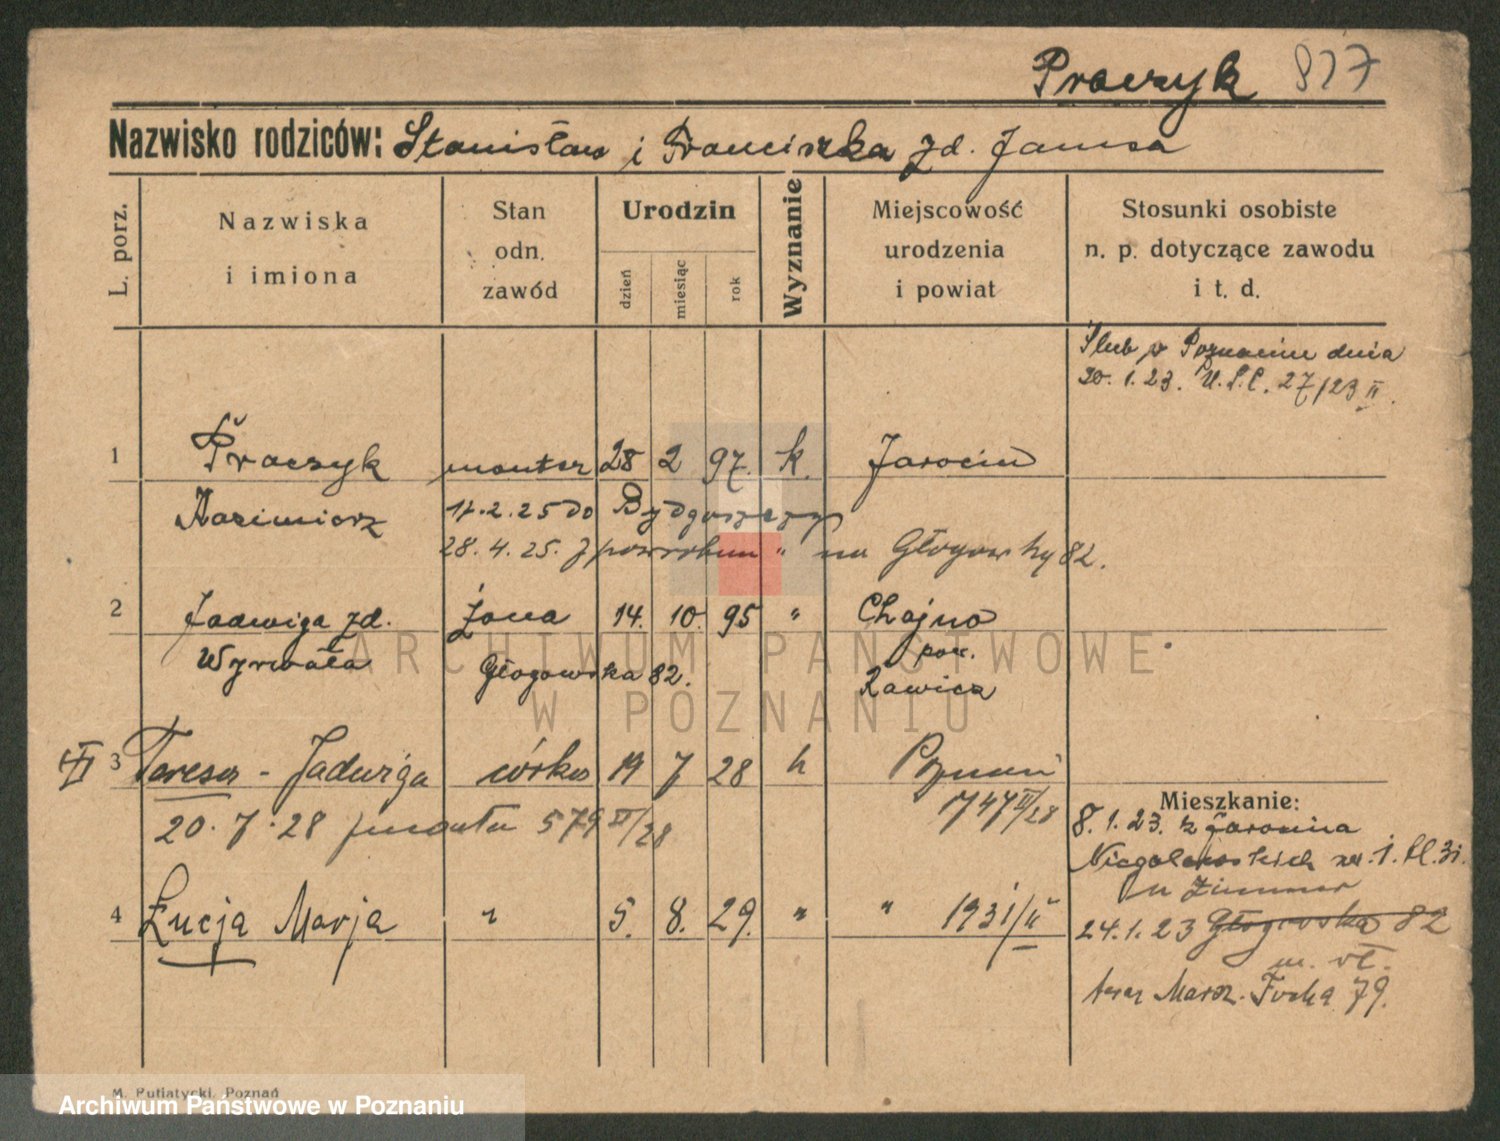 Praczyk 827
Nazwisko rodziców: Stanisław i Franciszka zd. Jamsa
L. porz.
Nazwiska i imiona
Stan odn. zawód
Urodzin
dzień
miesiąc
rok
Wyznanie
Miejscowość urodzenia i powiat
Stosunki osobiste n. p. dotyczące zawodu i t. d.
Ślub w Poznaniu dnia
20. 1. 23. U.S.C. 27/23 II.
1 Praczyk monter 28 2 97. k. Jarocin
Kazimierz 17.2.25 do Bydgoszczy
28.4.25. z powrotem " na Głogowską 82.
2 Jadwiga zd. żona 14. 10. 95 " Chojno
Wyrwała Głogowska 82. pow. Rawicz
3 Teresa - Jadwiga córka 19 7 28 k Poznań
1747 II/28
20.7.28 zmarła 579 II/28
4 Łucja Marja " 5. 8. 29. " " 1931/II
Mieszkanie:
8.1.23. z Jarocina
Niegolewskich nr. 1.
u Zimmer
24.1.23 Głogowska 82
m. wł.
teraz Marsz. Focha 79.
M. Putiatycki, Poznań
ARCHIWUM PAŃSTWOWE
W POZNANIU
Archiwum Państwowe w Poznaniu